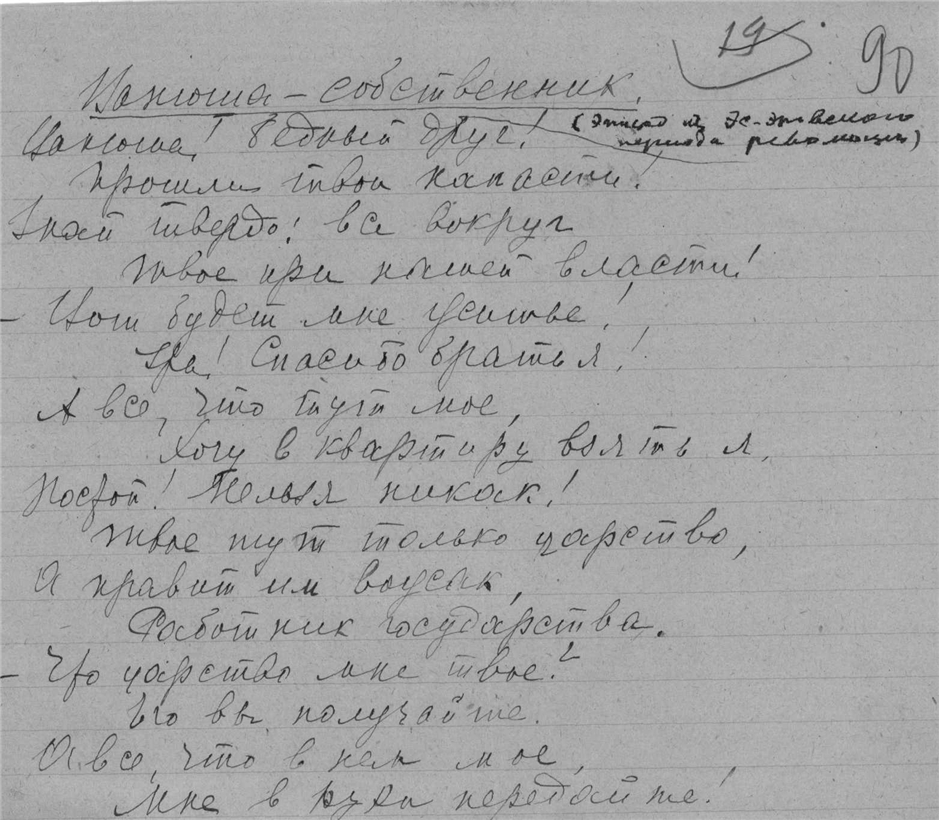 19
90
Ванюша – собственник.
(эпизод из эс-эровского
периода революции)
Ванюша! Бедный друг!
Прошли твои напасти!
Знай твердо: все вокруг
Твое при нашей власти!
– Вот будет мне житье!
Ура! Спасибо братья!
А все, что тут мое,
Хочу в квартиру взять я.
Постой! Нельзя никак!
Твое тут только царство,
А правит им
Работник государства.
– Что царство мне твое?
Его вы получайте.
А все, что в нем мое,
Мне в руки передайте!